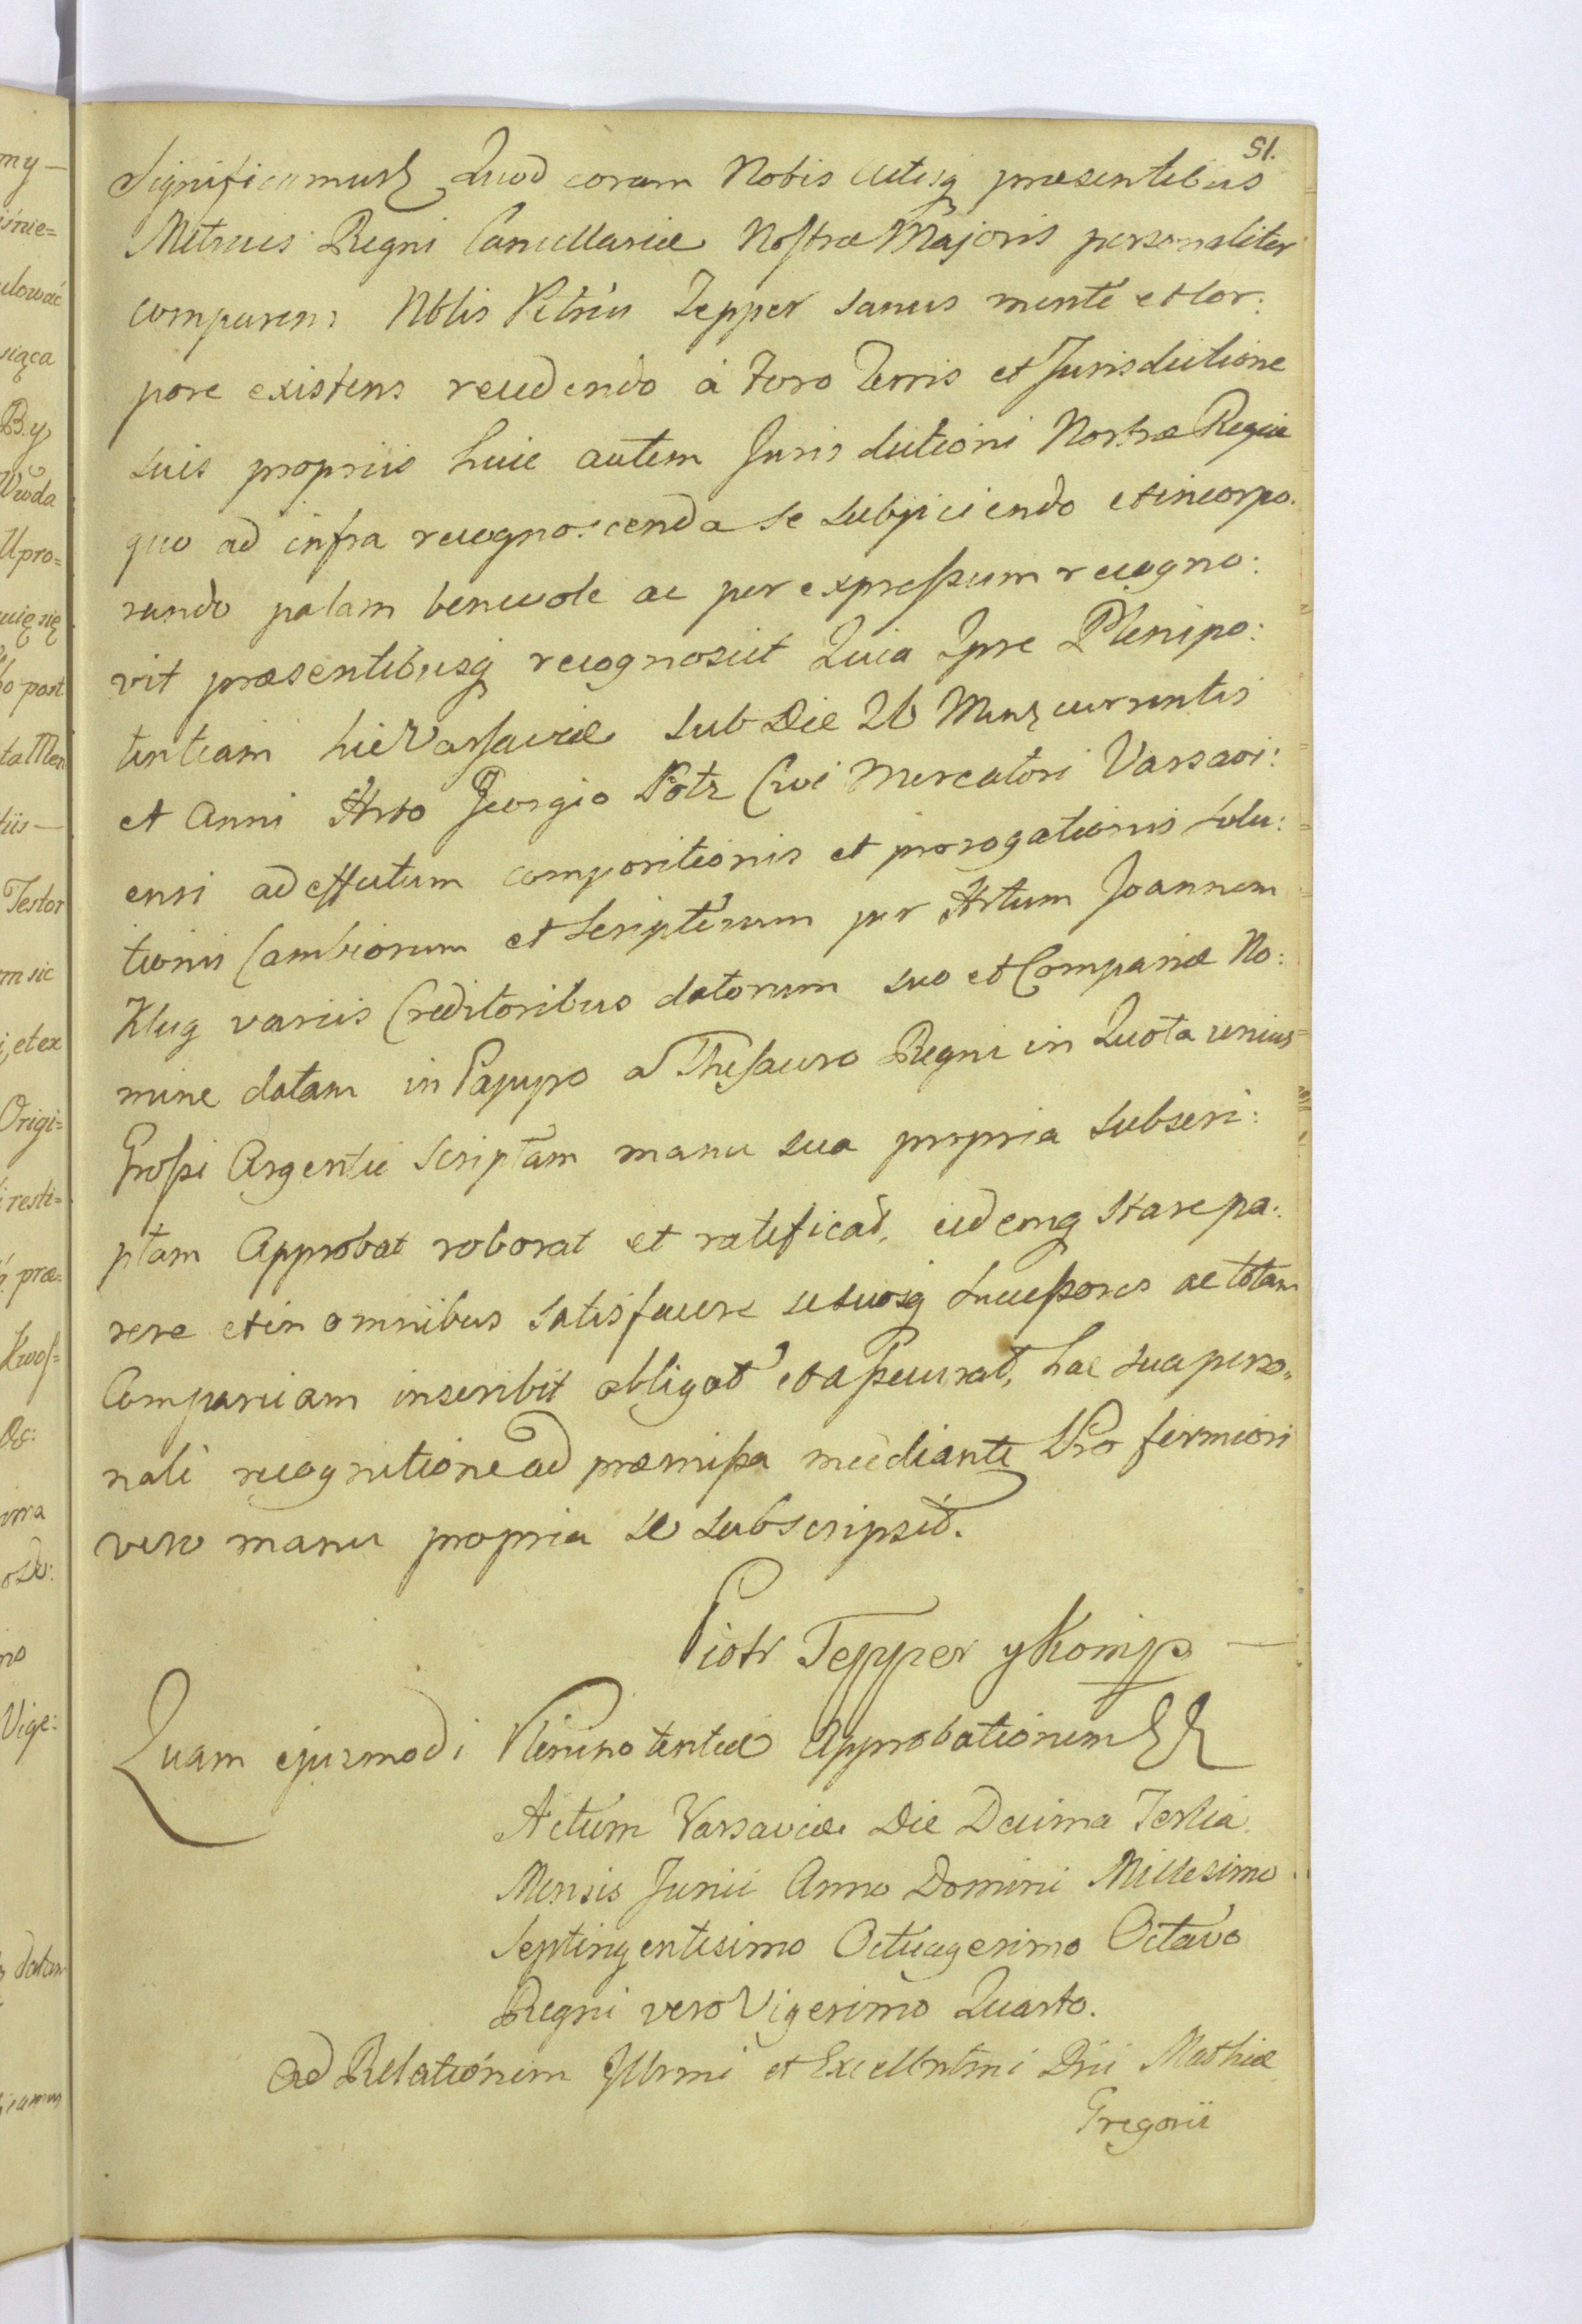 51.
Significamus Quod coram Nobis Actisq praesentibus
Metrices Regni Cancellariae Nostrae Majoris personaliter
comparens Nblis Petrus Tepper sanus mente et Cor:
pore existens recedendo à Foro Terris et Jurisdictione
suis propriis huic autem Jurisdictioni Nostrae Regiae
quo ad infra recognoscenda se subjiciendo et incorpo.
rando palam benevole ac per expressum recogno:
vit praesentibusq recognoscit Quia Ipse Plenipo:
tentiam hic Varsaviae sub Die 26 Mens currentis
et Anni Hrto Georgio Potz Civi Mercatori Varsavi:
ensi ad effectum compositionis et prorogationis solu:
tionis Cambiorum et Scriptorum per Hrtum Joannem
Klug variis Creditoribus datorum suo et Companiae No:
mine datam in Papyro a Thesauro Regni in Quota unius
Grossi Argentei scriptam manu sua propria subscri:
ptam Approbat roborat et ratificat, eidemq stare pa:
rere et in omnibus satisfacere se suosq Successores ac totam
Companiam inscribit obligat et assecurat, hac sua perso,
nali recognitione ad praemissa mediante Pro firmiori
vero manu propria se subscripsit.
Piotr Tepper y Komp —
Quam ejusmodi Plenipotentiae Approbationem
Actum Varsaviae Die Decima Tertia.
Mensis Junii Anno Domini Millesimo
Septingentesimo Octuagesimo Octavo
Regni vero Vigesimo Quarto.
Ad Relationem Illrmi et Excellntmi Dni Mathiae
Gregorii